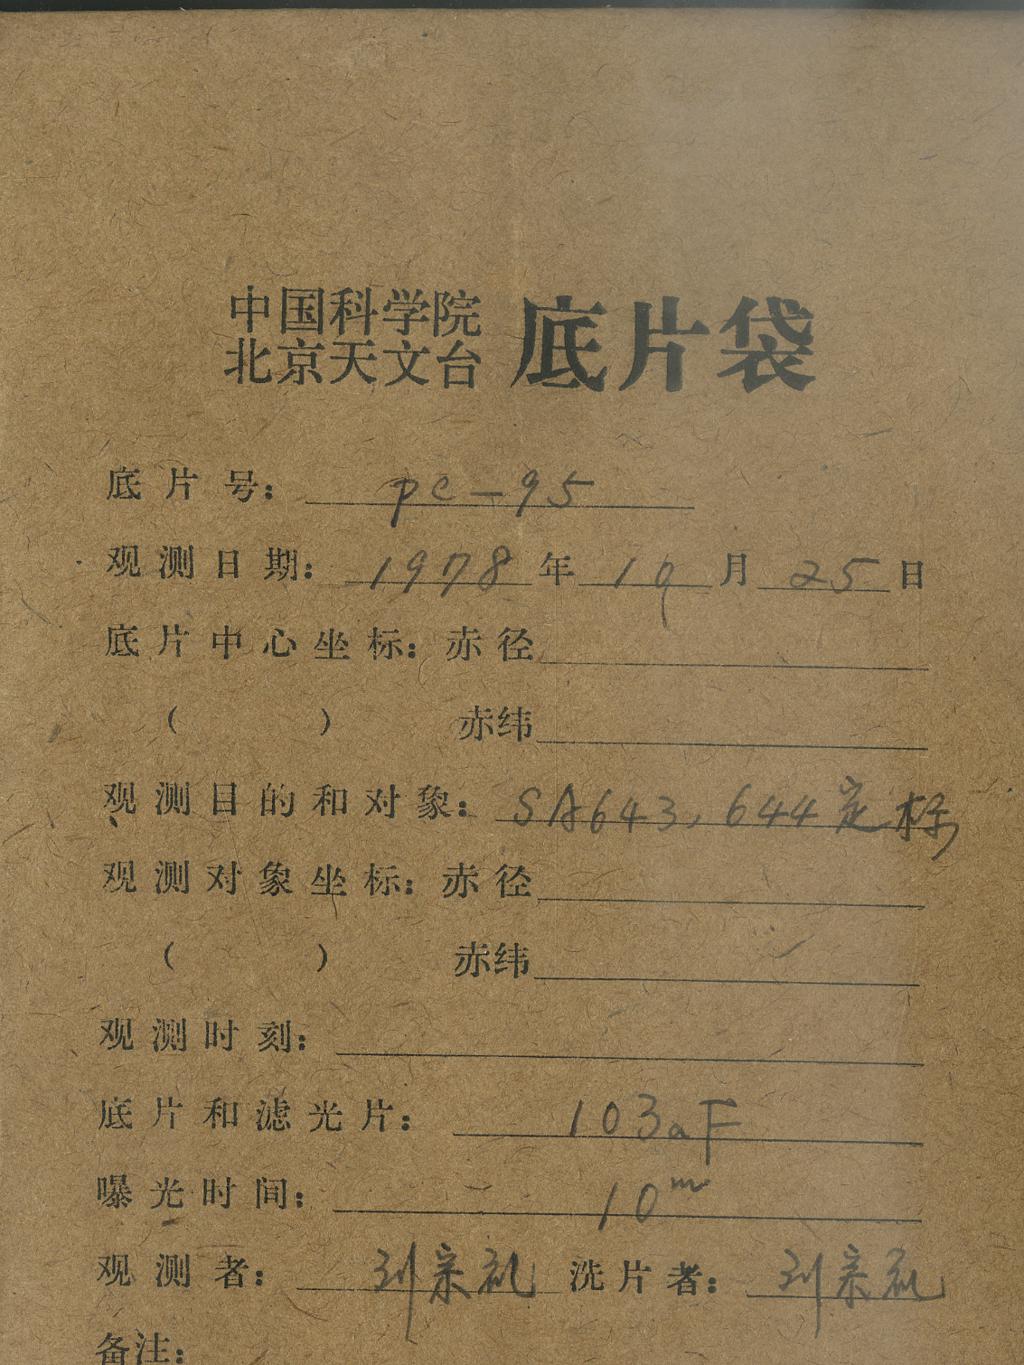 中国科学院
北京天文台 底片袋
底片号: pc-95
观测日期: 1978年10月25日
底片中心坐标: 赤径
( ) 赤纬
观测目的和对象: SA643, 644定标
观测对象坐标: 赤径
( ) 赤纬
观测时刻:
底片和滤光片: 103aF
曝光时间: 10m
观测者: 刘宗礼 洗片者: 刘宗礼
备注: